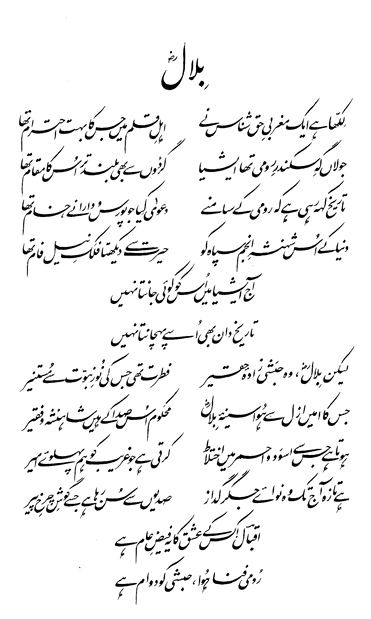 بلالؓ
لکھا ہے ایک مغربیِ حق شناس نے اہلِ قلم میں جس کا بہت احترام تھا
جولاں گہِ سکندرِ رومی تھا ایشیا گردوں سے بھی بلند تر اس کا مقام تھا
تاریخ کہہ رہی ہے کہ رومی کے سامنے دعویٰ کیا جو پورس و دارا نے، خام تھا
دنیا کے اُس شہنشہِ انجم سپاہ کو حیرت سے دیکھتا فلکِ نیل فام تھا
آج ایشیا میں اُس کو کوئی جانتا نہیں
تاریخ دان بھی اُسے پہچانتا نہیں
لیکن بلالؓ، وہ حبشی زادۂ حقیر فطرت تھی جس کی نورِ نبوّت سے مُستنیر
جس کا امیں ازل سے ہُوا سینۂ بلالؓ محکوم اُس صدا کے ہیں شاہنشہ و فقیر
ہوتا ہے جس سے اسود و احمر میں اختلاط کرتی ہے جو غریب کو ہم پہلوئے امیر
ہے تازہ آج تک وہ نوائے جگر گداز صدیوں سے سُن رہا ہے جسے گوشِ چرخِ پیر
اقبالؔ! کس کے عشق کا یہ فیضِ عام ہے
رومی فنا ہُوا، حبشی کو دوام ہے